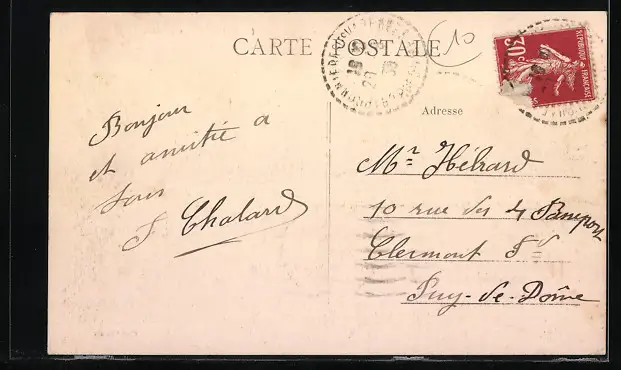 CARTE POSTALE
10
RÉPUBLIQUE FRANÇAISE
30c
Adresse
Bonjour
et amitié a
tous
J Chalard
Mr Hébrard
10 rue des 4 Passeport
Clermont Fd
Puy-de-Dôme